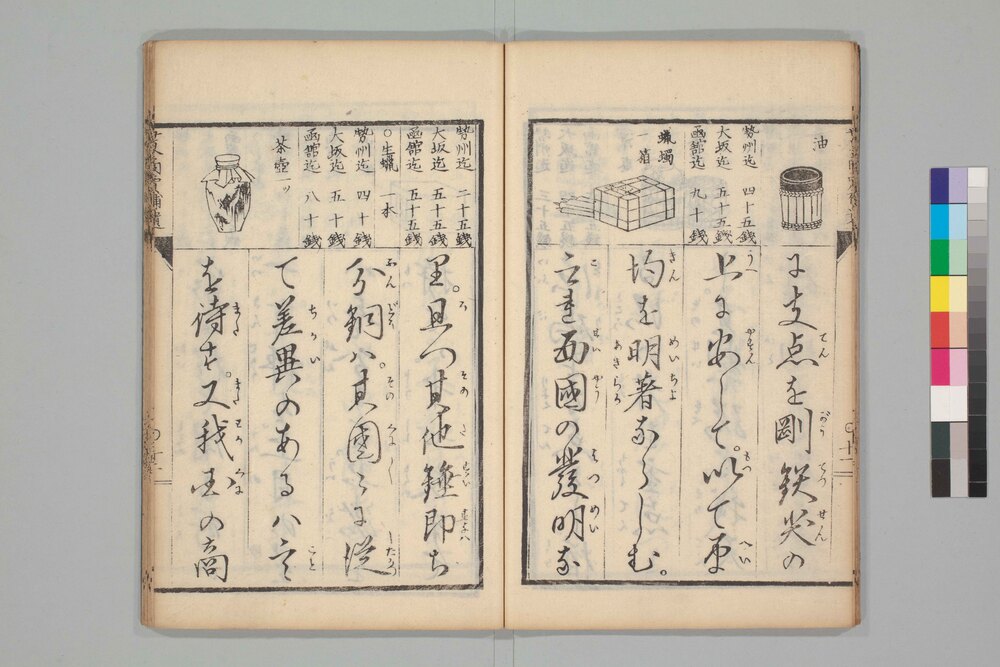 油
勢州迄 四十五銭
大坂迄 五十五銭
函館迄 九十銭
蝋燭
一箱
に支点を剛鉄尖の
上に安して。以て平
均を明著ならしむ。
こは西國の發明な
勢州迄 二十五銭
大坂迄 五十五銭
函館迄 五十五銭
○生蝋 一本
勢州迄 四十銭
大坂迄 五十銭
函館迄 八十銭
茶壺一ツ
里。且つ其他錘即ち
分銅ハ。其國〻に従
て差異のあるハ言
を待す。又我国の商